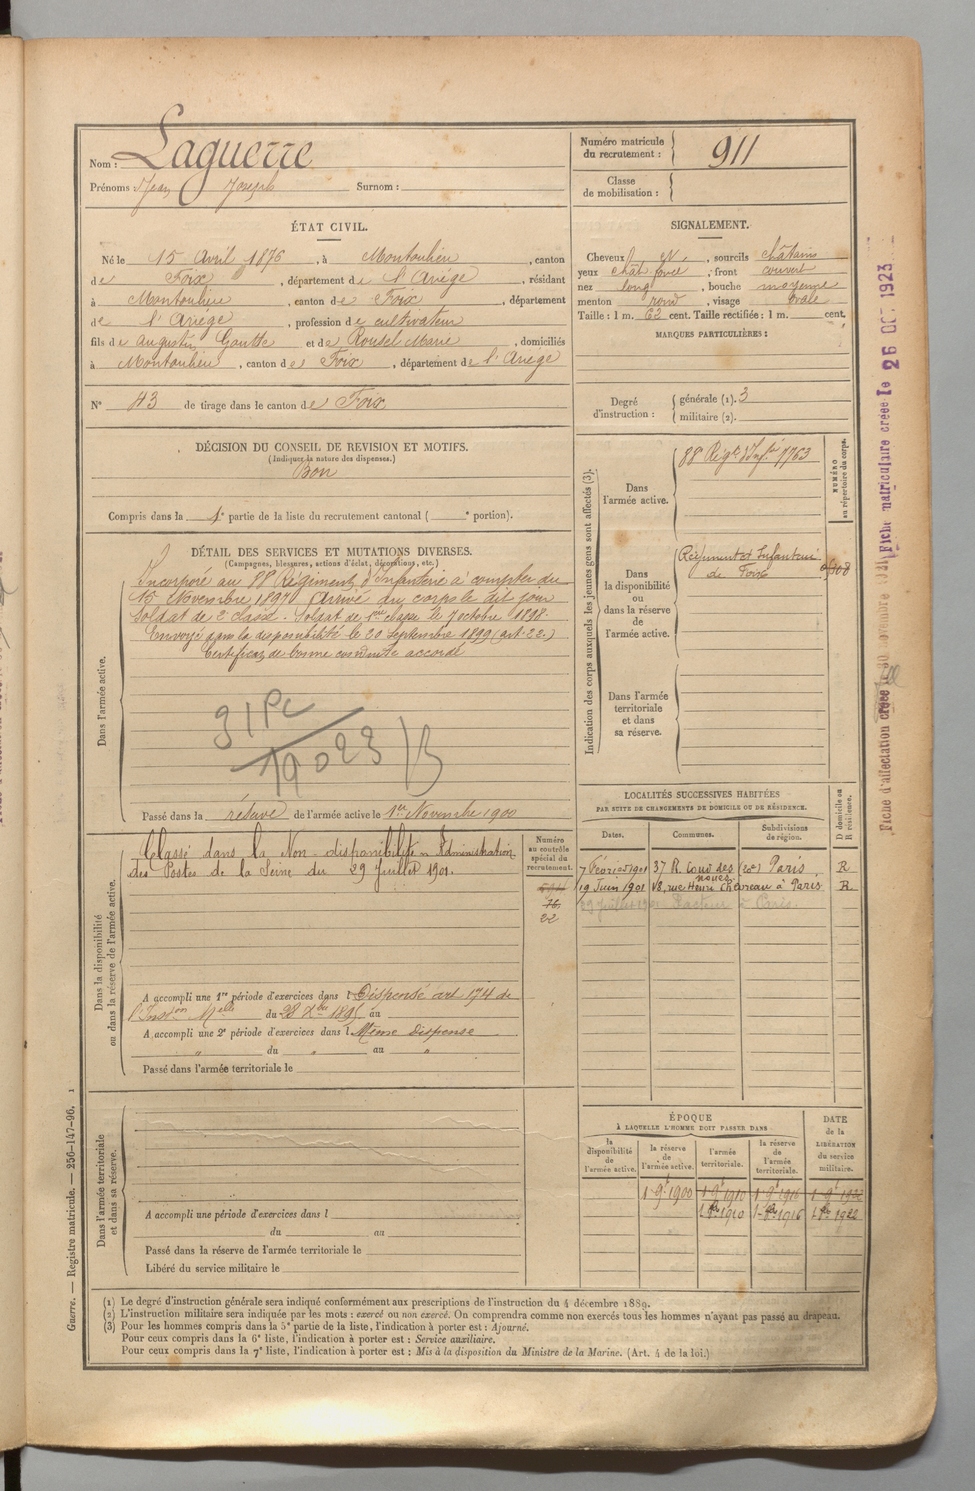 Nom : Laguerre
Prénoms Jean Joseph Surnom :
Numéro matricule du recrutement : 911
Classe de mobilisation :
ÉTAT CIVIL.
Né le 15 Avril 1876, à Montoulieu, canton
de Foix, département de l'Ariège, résidant
à Montoulieu, canton de Foix, département
de l'Ariège, profession de cultivateur
fils de Augustin Goutte et de Rousel Marie, domiciliés
à Montoulieu, canton de Foix, département de l'Ariège
N° 43 de tirage dans le canton de Foix
SIGNALEMENT.
Cheveux, sourcils châtains
yeux chât. foncé, front couvert
nez long, bouche moyenne
menton rond, visage ovale
Taille : 1 m. 62 cent. Taille rectifiée : 1 m. cent.
MARQUES PARTICULIÈRES :
Degré d'instruction : générale (1). 3
militaire (2).
DÉCISION DU CONSEIL DE REVISION ET MOTIFS.
(Indiquer la nature des dispenses.)
Bon
Compris dans la 1e partie de la liste du recrutement cantonal ( e portion).
DÉTAIL DES SERVICES ET MUTATIONS DIVERSES.
(Campagnes, blessures, actions d'éclat, décorations, etc.)
Dans l'armée active.
Incorporé au 88e Régiment d'Infanterie à compter du
15 Novembre 1897 Arrivé au corps le dit jour
Soldat de 2e classe. Soldat de 1ère classe le 7 octobre 1898.
Envoyé dans la disponibilité le 20 Septembre 1899 (art. 22.)
Certificat de bonne conduite accordé
19023
Passé dans la réserve de l'armée active le 1er Novembre 1900
Indication des corps auxquels les jeunes gens sont affectés (3).
NUMÉRO au répertoire du corps.
Dans l'armée active.
88e Régt d'Infie 7763
Dans la disponibilité ou dans la réserve de l'armée active.
Régiment d'Infanterie
de Foix
Dans l'armée territoriale et dans sa réserve.
Dans la disponibilité ou dans la réserve de l'armée active.
Classé dans la Non-disponibilité - Administration
des Postes de la Seine du 29 Juillet 1901.
Numéro au contrôle spécial du recrutement.
76
22
A accompli une 1re période d'exercices dans l Dispensé art 174 de
l'Inston Melle du 28 Xbre 1895 au
A accompli une 2e période d'exercices dans l Même dispense
" du " au "
Passé dans l'armée territoriale le
LOCALITÉS SUCCESSIVES HABITÉES
PAR SUITE DE CHANGEMENTS DE DOMICILE OU DE RÉSIDENCE.
Dates. Communes. Subdivisions de région. D domicile ou R résidence.
7 Février 1901 37 R. Cour des Noues (20e) Paris R
19 Juin 1901 18, rue Henri Chevreau à Paris. R.
29 Juillet 1901 Facteur à Paris.
Dans l'armée territoriale et dans sa réserve.
A accompli une période d'exercices dans l
du au
Passé dans la réserve de l'armée territoriale le
Libéré du service militaire le
ÉPOQUE
À LAQUELLE L'HOMME DOIT PASSER DANS
la disponibilité de l'armée active. la réserve de l'armée active. l'armée territoriale. la réserve de l'armée territoriale. DATE de la LIBÉRATION du service militaire.
1-9e 1900 1-9e 1910 1-9e 1916 1-9e 1922
1-8bre 1910 1-8bre 1916 1-8bre 1922
(1) Le degré d'instruction générale sera indiqué conformément aux prescriptions de l'instruction du 4 décembre 1889.
(2) L'instruction militaire sera indiquée par les mots : exercé ou non exercé. On comprendra comme non exercés tous les hommes n'ayant pas passé au drapeau.
(3) Pour les hommes compris dans la 5e partie de la liste, l'indication à porter est : Ajourné.
Pour ceux compris dans la 6e liste, l'indication à porter est : Service auxiliaire.
Pour ceux compris dans la 7e liste, l'indication à porter est : Mis à la disposition du Ministre de la Marine. (Art. 4 de la loi.)
Guerre. — Registre matricule. — 256-147-96. 1
Fiche matriculaire créée le 26 OCT. 1923
Fiche d'affectation créée le 30 novembre